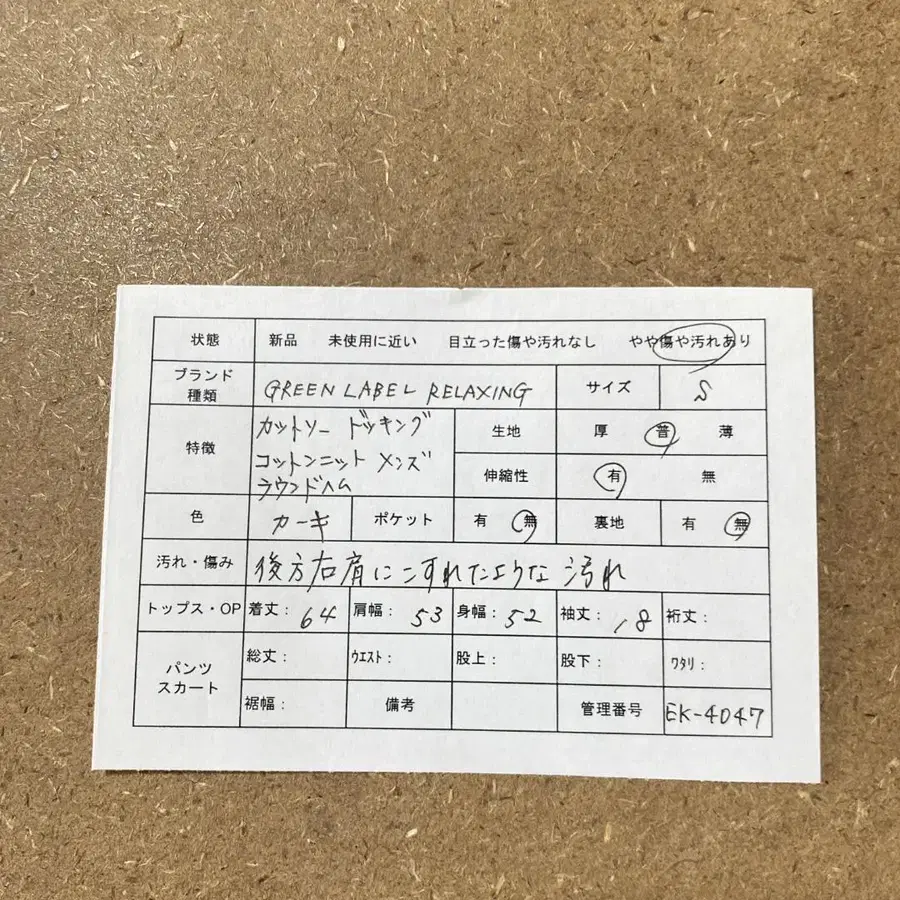 状態 新品 未使用に近い 目立った傷や汚れなし やや傷や汚れあり
ブランド 種類 GREEN LABEL RELAXING サイズ S
特徴 カットソー ドッキング 生地 厚 普 薄
コットンニット メンズ 伸縮性 有 無
ラウンドヘム
色 カーキ ポケット 有 無 裏地 有 無
汚れ・傷み 後方右肩にこすれたような汚れ
トップス・OP 着丈：64 肩幅：53 身幅：52 袖丈：18 裄丈：
パンツ スカート 総丈： ウエスト： 股上： 股下： ワタリ：
裾幅： 備考 管理番号 EK-4047